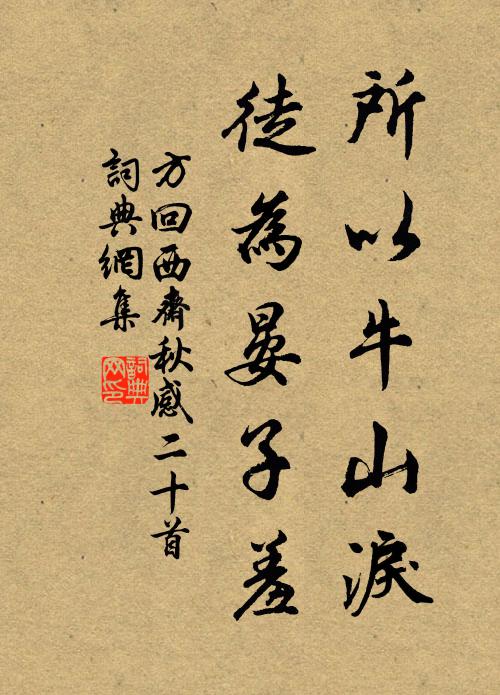 所以牛山淚
徒為晏子羞
方回西齋秋感二十首
詞典網集
詞典
网印